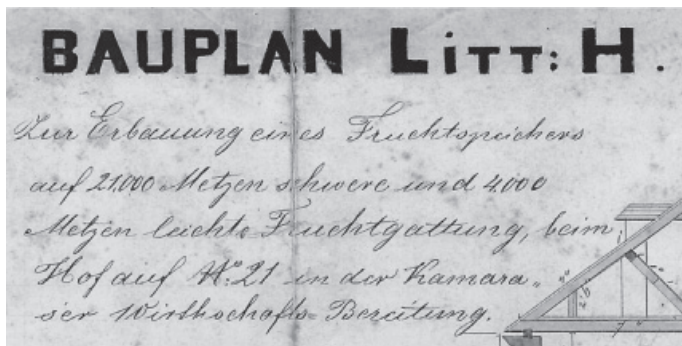 BAUPLAN LiTT: H.
Zur Erbauung eines Fruchtspeichers
auf 21.000 Metzen schwere und 4.000
Metzen leichte Fruchtgattung, beim
Hof auf No: 21 in der Kamara„
ser Wirthschafts- Bereitung.